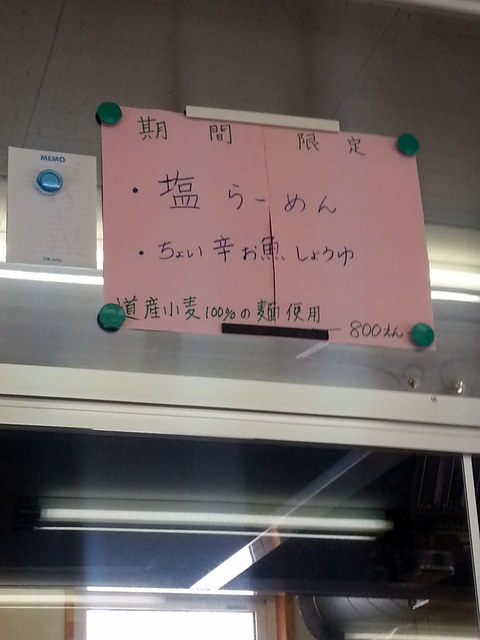 MEMO
期間限定
・塩らーめん
・ちょい辛お魚しょうゆ
道産小麦100%の麺使用
800えん